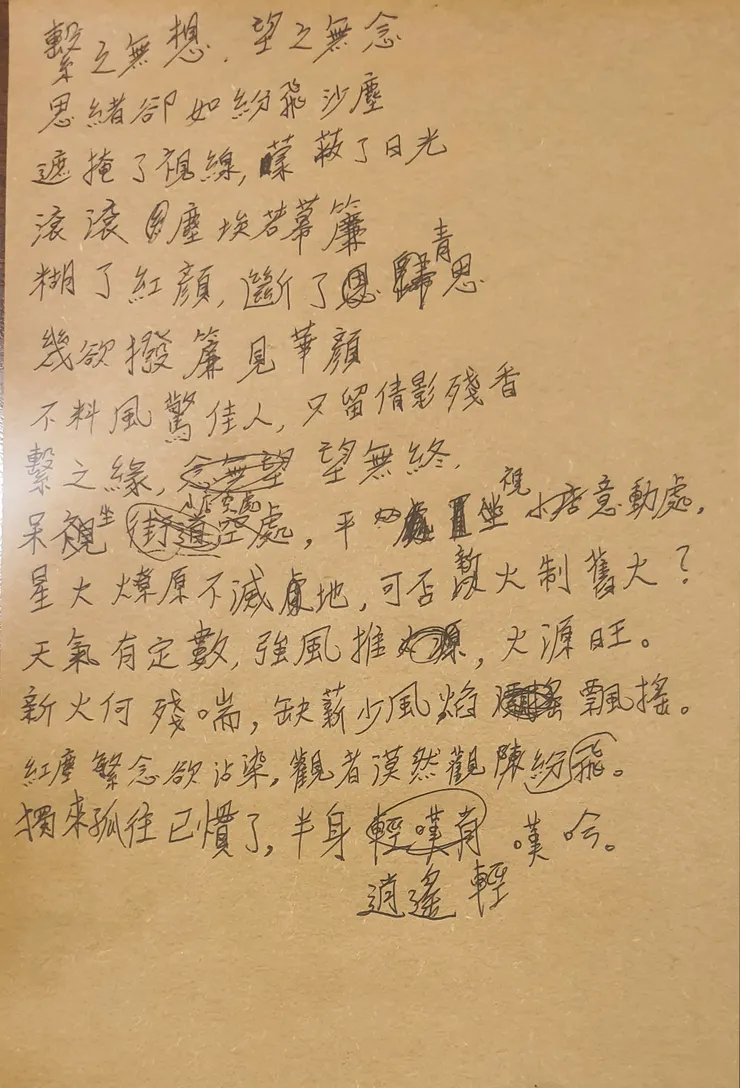 繫之無想，望之無念
思緒卻如紛飛沙塵
遮掩了視線，蒙蔽了日光
滾滾塵埃若幕簾
糊了紅顏，斷了青思
幾欲撥簾見華顏
不料風驚佳人，只留倩影殘香
繫之緣，望無終，
呆坐空處，平視小店意動處，
星火燎原不滅地，可否新火制舊火？
天氣有定數，強風推，火源旺。
新火何殘喘，缺薪少風焰飄搖。
紅塵繁念欲沾染，觀者漠然觀陳紛飛。
獨來孤往已慣了，半身嘆吟。
逍遙輕